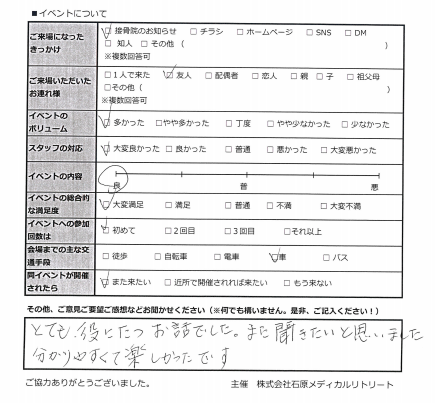 ■イベントについて
ご来場になった
きっかけ
□ 接骨院のお知らせ □ チラシ □ ホームページ □ SNS □ DM
□ 知人 □ その他（ ）
※複数回答可
ご来場いただいた
お連れ様
□1人で来た □友人 □ 配偶者 □ 恋人 □ 親 □ 子 □ 祖父母
□その他（ ）
※複数回答可
イベントの
ボリューム
□ 多かった □やや多かった □ 丁度 □ やや少なかった □ 少なかった
スタッフの対応
□ 大変良かった □ 良かった □ 普通 □ 悪かった □ 大変悪かった
イベントの内容
良 普 悪
イベントの総合的
な満足度
□ 大変満足 □ 満足 □ 普通 □ 不満 □ 大変不満
イベントへの参加
回数は
□ 初めて □2回目 □3回目 □それ以上
会場までの主な交
通手段
□ 徒歩 □ 自転車 □ 電車 □車 □ バス
同イベントが開催
されたら
□ また来たい □ 近所で開催されれば来たい □ もう来ない
その他、ご意見ご要望ご感想などお聞かせください（※何でも構いません。是非、ご記入ください！）
とても役にたつお話でした。また聞きたいと思いました
分かりやすくて楽しかったです
ご協力ありがとうございました。 主催 株式会社石原メディカルリトリート